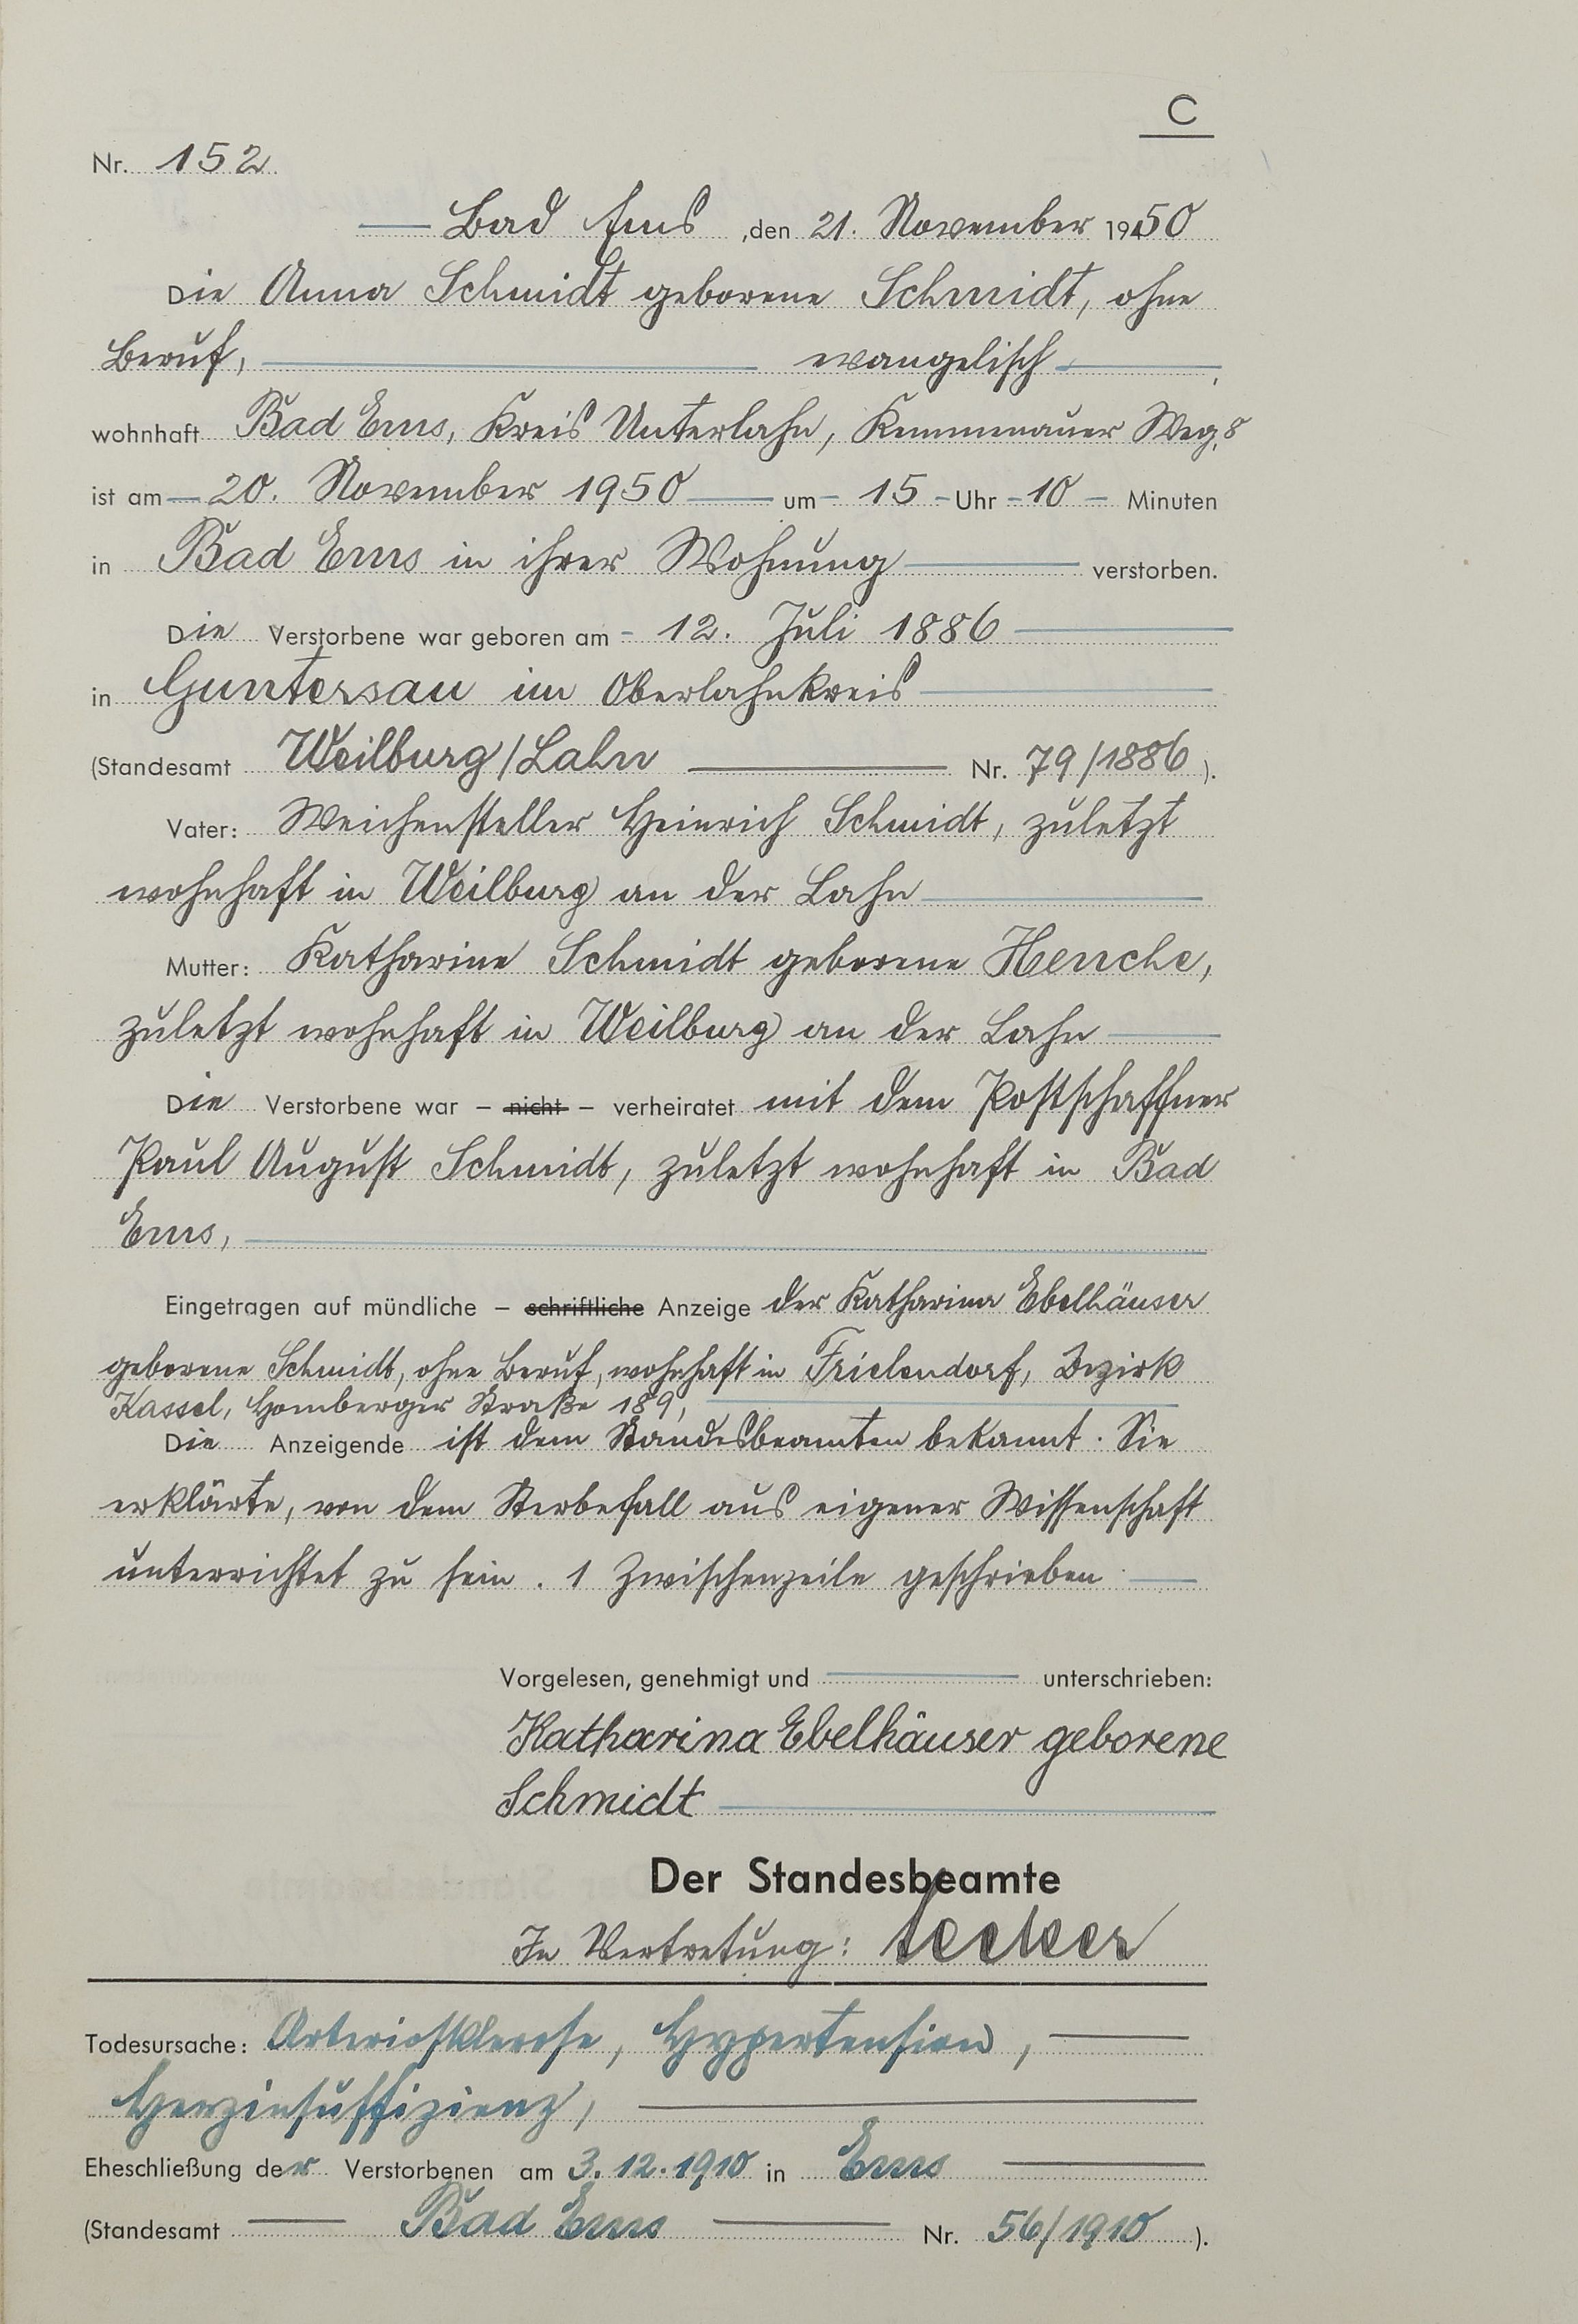 C
Nr. 152
Bad Ems, den 21. November 1950
Die Anna Schmidt geborene Schmidt, ohne
Beruf, evangelisch,
wohnhaft Bad Ems, Kreis Unterlahn, Kemmenauer Weg 8
ist am 20. November 1950 um 15 Uhr 10 Minuten
in Bad Ems in ihrer Wohnung verstorben.
Die Verstorbene war geboren am 12. Juli 1886
in Guntersau im Oberlahnkreis
(Standesamt Weilburg/Lahn Nr. 79/1886).
Vater: Weichensteller Heinrich Schmidt, zuletzt
wohnhaft in Weilburg an der Lahn
Mutter: Katharine Schmidt geborene Henche,
zuletzt wohnhaft in Weilburg an der Lahn
Die Verstorbene war – nicht – verheiratet mit dem Postschaffner
Paul August Schmidt, zuletzt wohnhaft in Bad
Ems,
Eingetragen auf mündliche – schriftliche Anzeige der Katharina Ebelhäuser
geborene Schmidt, ohne Beruf, wohnhaft in Frielendorf, Bezirk
Kassel, Homberger Straße 189,
Die Anzeigende ist dem Standesbeamten bekannt. Sie
erklärte, von dem Sterbefall aus eigener Wissenschaft
unterrichtet zu sein. 1 Zwischenzeile geschrieben
Vorgelesen, genehmigt und unterschrieben:
Katharina Ebelhäuser geborene
Schmidt
Der Standesbeamte
In Vertretung:
Todesursache: Arteriosklerose, Hypertension,
Herzinsuffizienz,
Eheschließung der Verstorbenen am 3.12.1910 in Ems
(Standesamt Bad Ems Nr. 56/1910).